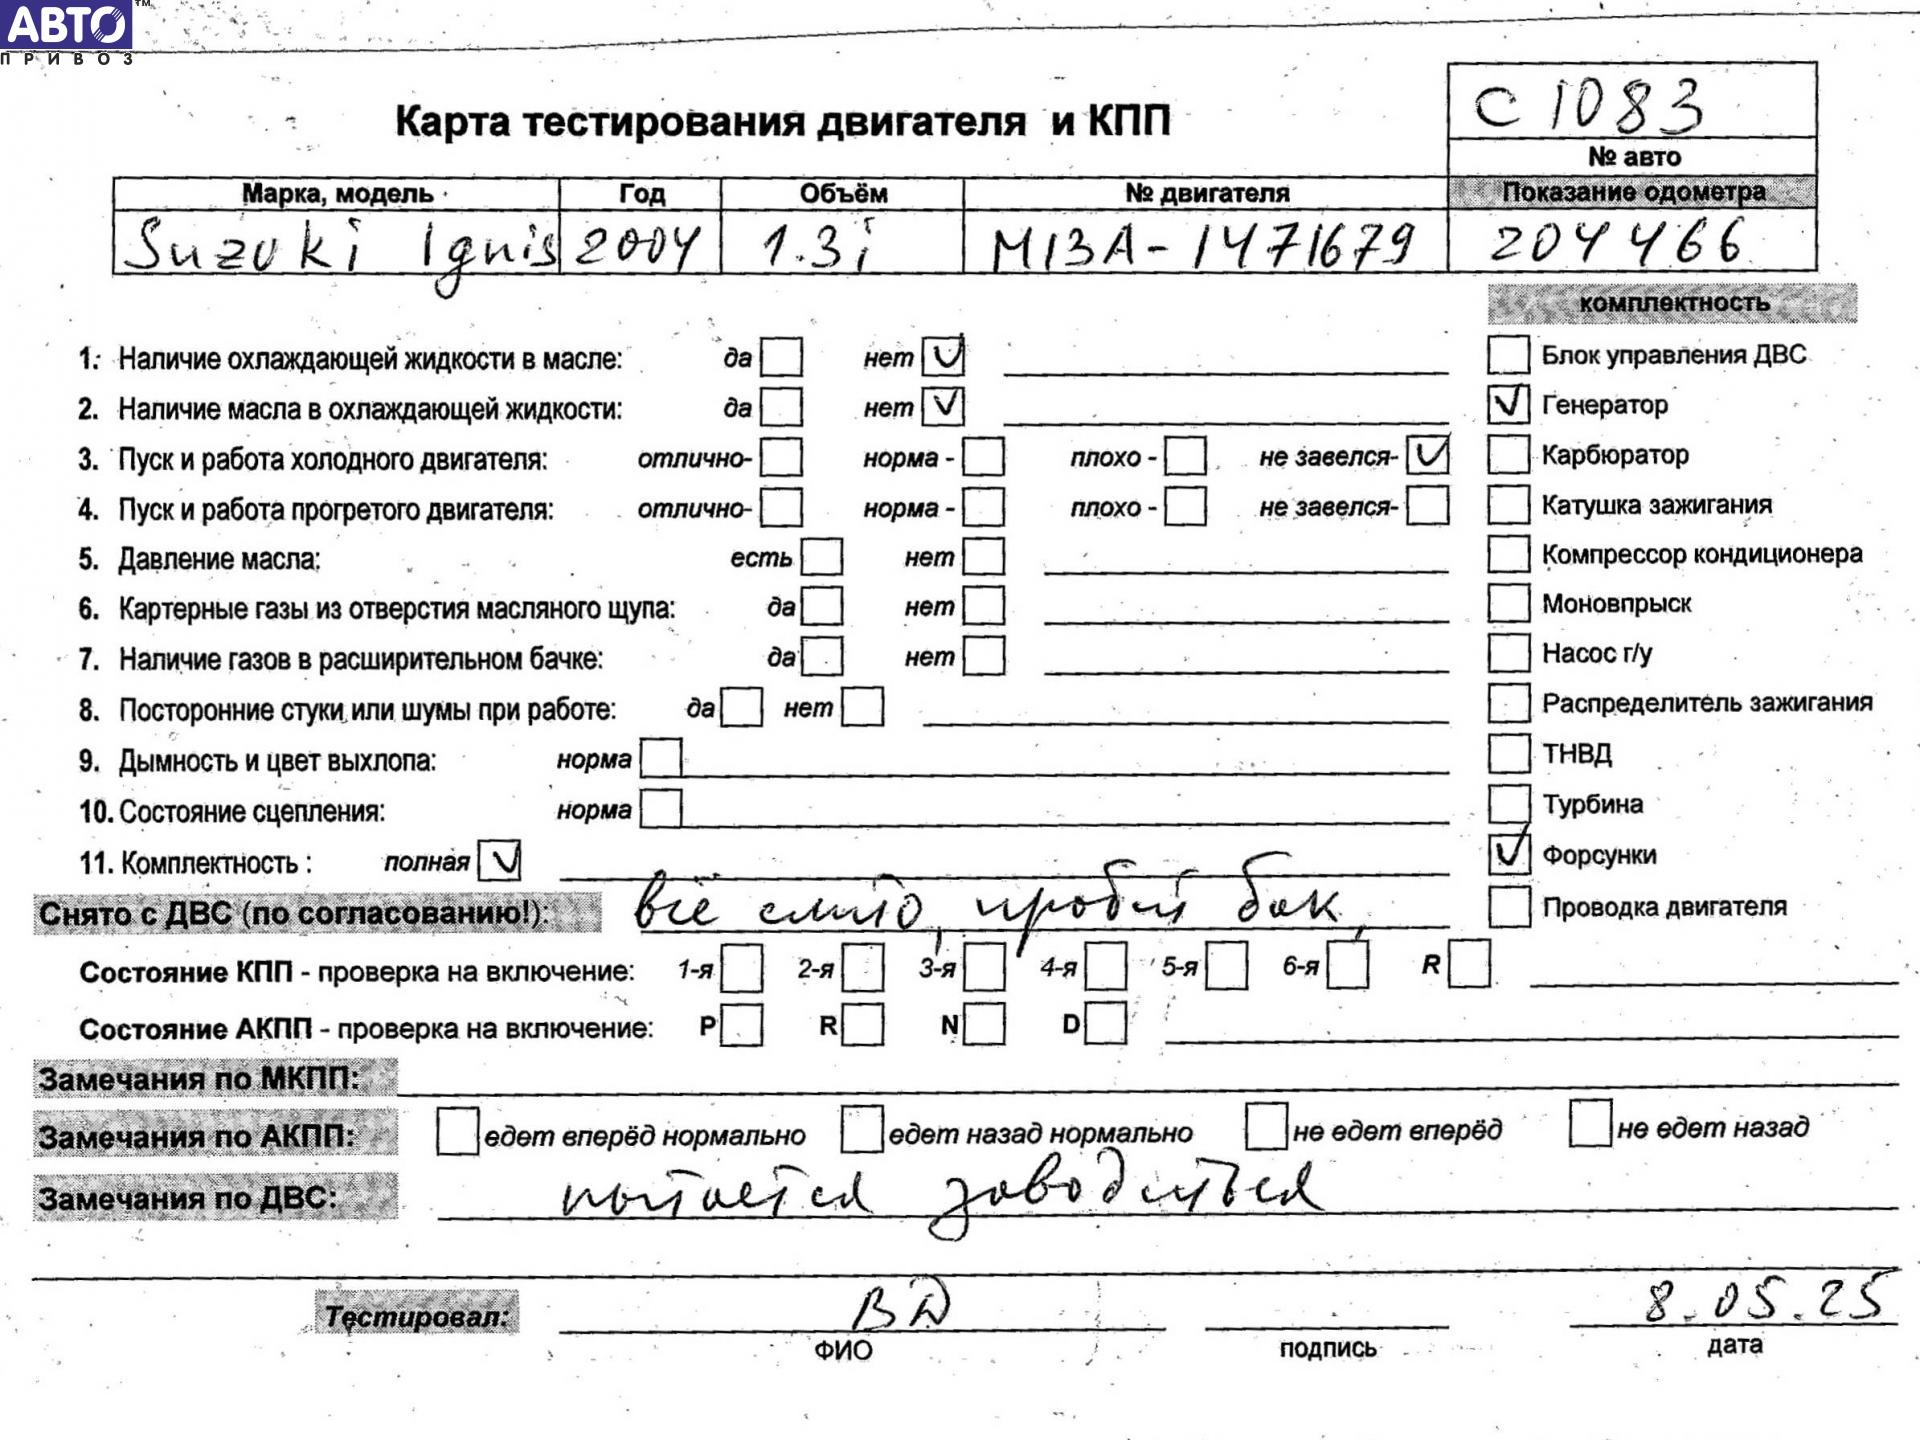 АВТО™
ПРИВОЗ
С1083
Карта тестирования двигателя и КПП
№ авто
Марка, модель Год Объём № двигателя Показание одометра
Suzuki Ignis 2004 1.3i M13A-1471679 204466
комплектность
1. Наличие охлаждающей жидкости в масле: да нет ✓
Блок управления ДВС
2. Наличие масла в охлаждающей жидкости: да нет ✓
✓ Генератор
3. Пуск и работа холодного двигателя: отлично- норма - плохо - не завелся- ✓
Карбюратор
4. Пуск и работа прогретого двигателя: отлично- норма - плохо - не завелся-
Катушка зажигания
5. Давление масла: есть нет
Компрессор кондиционера
6. Картерные газы из отверстия масляного щупа: да нет
Моновпрыск
7. Наличие газов в расширительном бачке: да нет
Насос г/у
8. Посторонние стуки или шумы при работе: да нет
Распределитель зажигания
9. Дымность и цвет выхлопа: норма
ТНВД
10. Состояние сцепления: норма
Турбина
11. Комплектность : полная ✓
✓ Форсунки
Снято с ДВС (по согласованию!): всё слито, пробит бак
Проводка двигателя
Состояние КПП - проверка на включение: 1-я 2-я 3-я 4-я 5-я 6-я R
Состояние АКПП - проверка на включение: P R N D
Замечания по МКПП:
Замечания по АКПП: едет вперёд нормально едет назад нормально не едет вперёд не едет назад
Замечания по ДВС: пытается заводиться
Тестировал: ВД 8.05.25
ФИО подпись дата